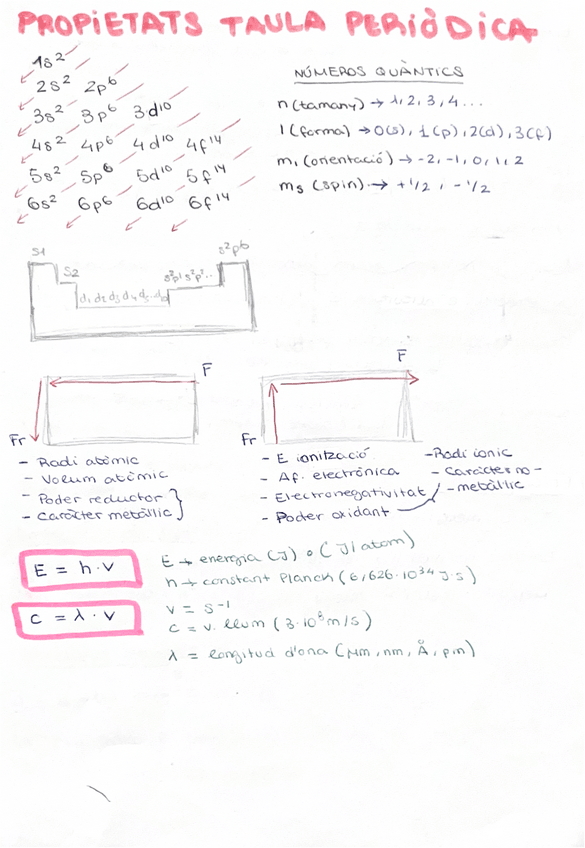 PROPIETATS TAULA PERIÒDICA
1s²
2s² 2p⁶
3s² 3p⁶ 3d¹⁰
4s² 4p⁶ 4d¹⁰ 4f¹⁴
5s² 5p⁶ 5d¹⁰ 5f¹⁴
6s² 6p⁶ 6d¹⁰ 6f¹⁴
NÚMEROS QUÀNTICS
n (tamany) → 1, 2, 3, 4...
l (forma) → 0(s), 1(p), 2(d), 3(f)
m, (orientació) → -2, -1, 0, 1, 2
ms (spin) → +1/2, -1/2
S1
S2
d1 d2 d3 d4 d5..d10
s²p¹ s²p²..
s²p⁶
F
Fr
- Radi atòmic
- Volum atòmic
- Poder reductor
- Caràcter metàl·lic
F
Fr
- E ionització
- Af. electrònica
- Electronegativitat
- Poder oxidant
- Radi ionic
- Caràcter no-
- metàl·lic
E = h·v
E → energia (J) o (J/atom)
h → constant Planck (6,626·10³⁴ J·s)
c = λ·v
v = s⁻¹
c = v. llum (3·10⁸ m/s)
λ = longitud d'ona (μm, nm, Å, pm)